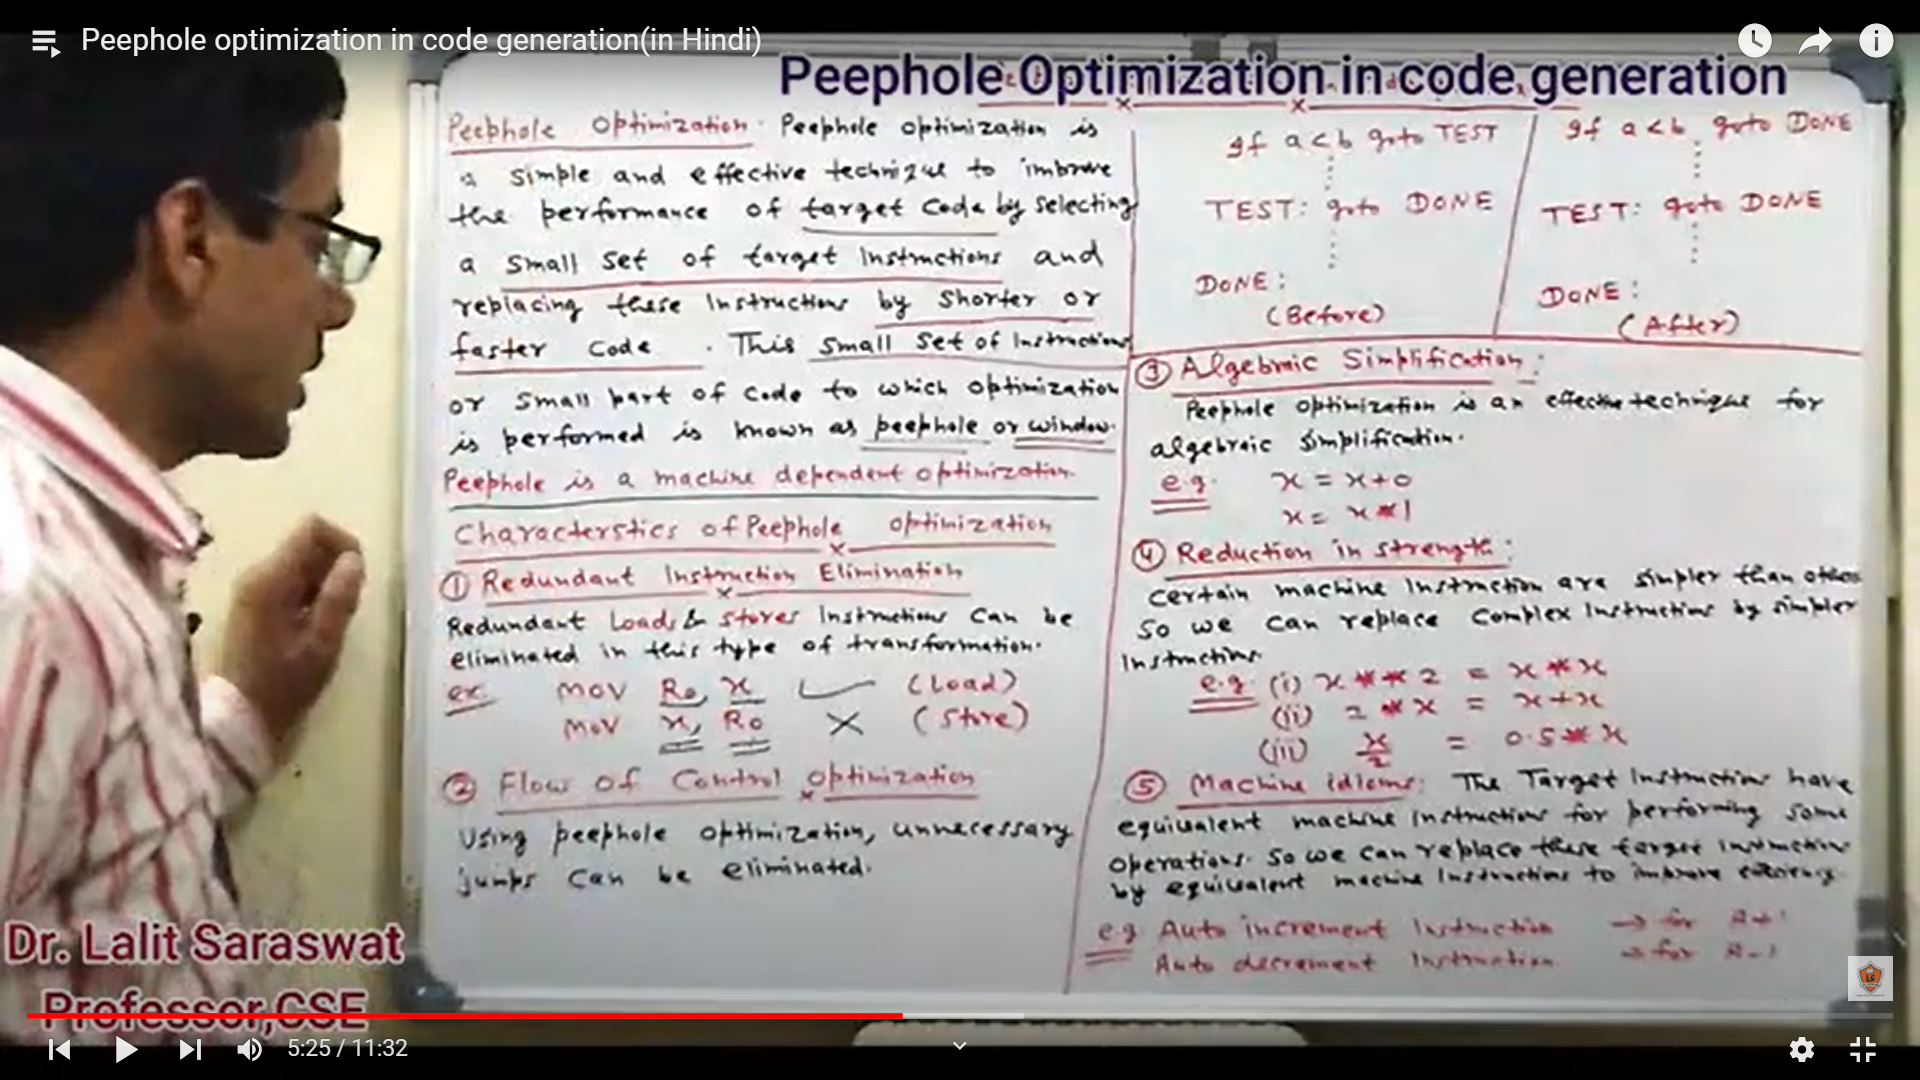 Peephole optimization in code generation(in Hindi)
Peephole Optimization in code generation
Peephole Optimization. Peephole optimization is
a simple and effective technique to improve
the performance of target code by selecting
a small set of target Instructions and
replacing these Instructions by Shorter or
faster code. This small set of Instructions
or small part of code to which optimization
is performed is known as peephole or window.
Peephole is a machine dependent optimization.
Characterstics of Peephole optimization
① Redundant Instruction Elimination
Redundant Loads & stores Instructions can be
eliminated in this type of transformation.
ex. MOV R0, x (Load)
MOV x, R0 × (Store)
② Flow of Control optimization
Using peephole optimization, unnecessary
jumps can be eliminated.
If a < b goto TEST
TEST: goto DONE
DONE:
(Before)
If a < b goto DONE
TEST: goto DONE
DONE:
(After)
③ Algebraic Simplification:
Peephole optimization is an effective technique for
algebraic simplification.
e.g. x = x+0
x = x*1
④ Reduction in strength:
certain machine Instruction are simpler than others
so we can replace complex Instructions by simpler
Instructions.
e.g. (i) x**2 = x*x
(ii) 2*x = x+x
(iii) x/2 = 0.5*x
⑤ Machine idioms: The Target Instructions have
equivalent machine instructions for performing some
operations. So we can replace these target instructions
by equivalent machine Instructions to improve efficiency.
e.g Auto increment Instruction → for R+1
Auto decrement Instruction → for R-1
Dr. Lalit Saraswat
Professor,CSE
5:25 / 11:32